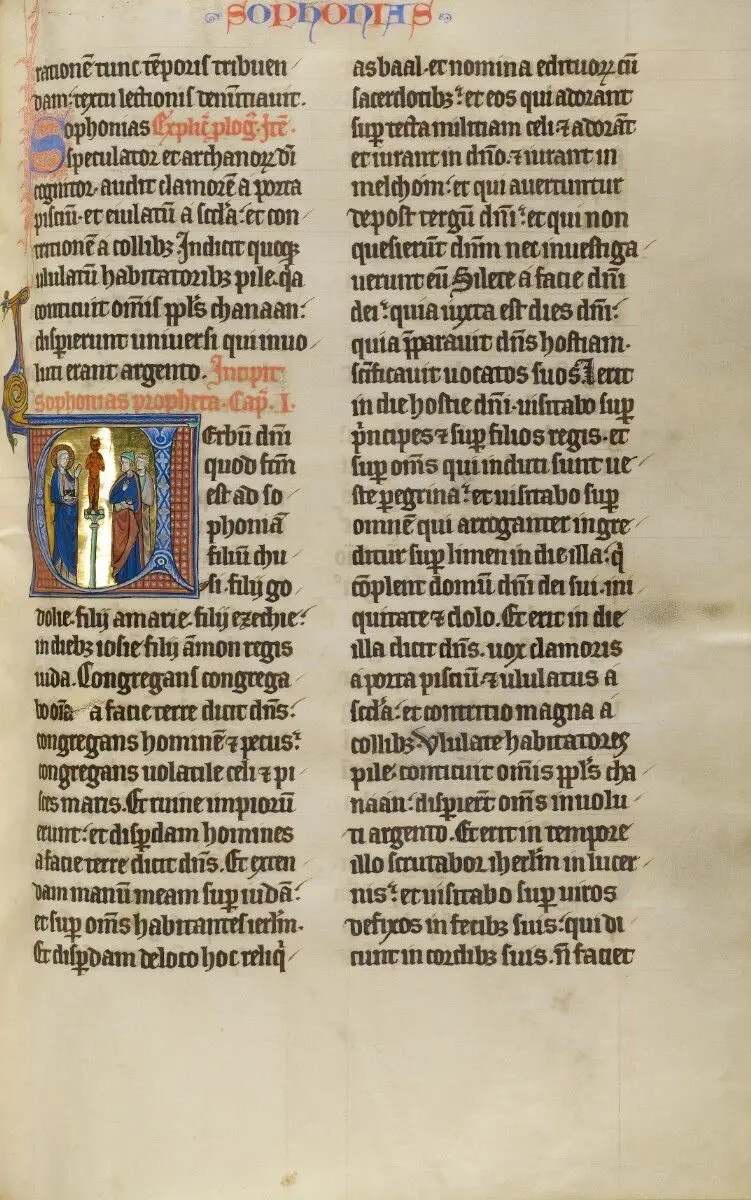 SOPHONIAS
rationē tunc tēporis tribuen
dam: textu lectionis denūtiauit.
Sophonias Explic̄ ploḡ. Itē.
speculator et archanoꝝ dī
cognitor. audit clamorē a porta
pisciū. et eiulatū a scd̄a: et con
tritionē a collibꝫ. Indicit quoqꝫ
ululatū habitatoribꝫ pile. qꝛ
conticuit om̄is ppl̄s chanaan:
disꝑierunt uniuersi qui inuo
luti erant argento. Incipit
sophonias propheta. Cap̄. I.
Verbū dn̄i
quod fc̄m
est ad so
phoniā
filiū chu
si. filij go
dolie. filij amarie. filij ezechie:
in diebꝫ iosie filij āmon regis
iuda. Congregans congrega
bo oīa a facie terre dicit dn̄s:
congregans hominē ⁊ pecus:
congregans uolatile celi ⁊ pi
sces maris. Et ruine impiorū
erunt: et disꝑdam homines
a facie terre dicit dn̄s. Et exten
dam manū meam suꝑ iudā:
et suꝑ om̄s habitantes ierl̄m.
Et disꝑdam de loco hoc reliq̇
as baal. et nomina edituoꝝ cū
sacerdotibꝫ: et eos qui adorant
suꝑ tecta militiam celi: ⁊ adorāt
et iurant in dn̄o. ⁊ iurant in
melchom: et qui auertuntur
de post tergū dn̄i: et qui non
quesierūt dn̄m nec inuestiga
uerunt eū. Silete a facie dn̄i
dei: quia iuxta est dies dn̄i:
quia p̄parauit dn̄s hostiam.
sc̄ificauit uocatos suos. Et erit
in die hostie dn̄i. uisitabo suꝑ
pͥncipes ⁊ suꝑ filios regis. et
suꝑ om̄s qui induti sunt ue
ste peregrina: et uisitabo suꝑ
omnē qui arroganter ingre
ditur suꝑ limen in die illa: qͥ
cōplent domū dn̄i dei sui. ini
quitate ⁊ dolo. Et erit in die
illa dicit dn̄s. uox clamoris
a porta pisciū. ⁊ ululatus a
scd̄a: et contritio magna a
collibꝫ. Ululate habitatores
pile. conticuit om̄is ppl̄s cha
naan: disꝑier̄t om̄s inuolu
ti argento. Et erit in tempore
illo scrutabor iherl̄m in lucer
nis: et uisitabo suꝑ uiros
defixos in fecibꝫ suis: qui di
cunt in cordibꝫ suis. n̄ faciet